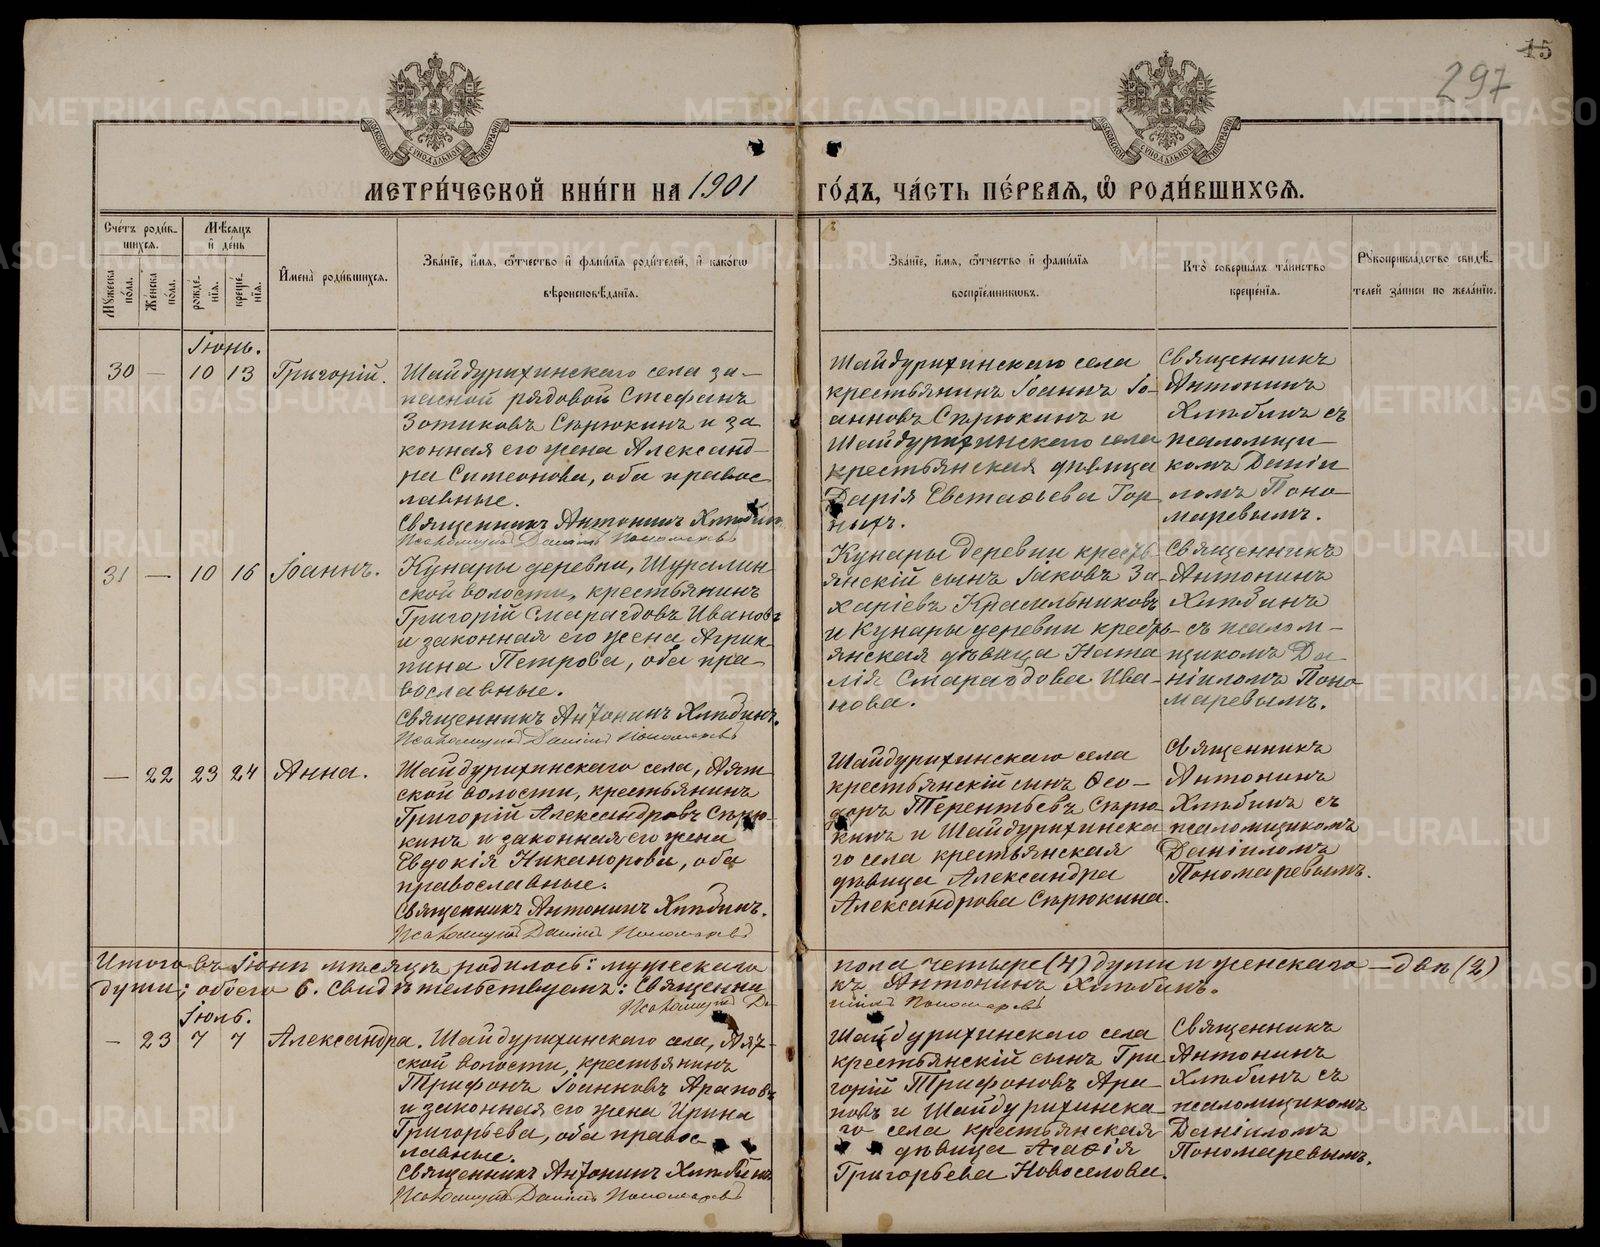 15
297
МЕТРИ́ЧЕСКОЙ КНИ́ГИ НА 1901
ГО́ДЪ, ЧА́СТЬ ПЕ́РВАЯ, Ѡ РОДИ́ВШИХСѦ.
Сче́тъ роди́в-
шихся.
Мѣ́сяцъ
и де́нь
Мꙋ́жеска
по́ла.
Же́нска
по́ла.
рожде-
нїя.
креще-
нїя.
И҆мена̀ роди́вшихся.
Зва́нїе, и҆́мя, ѻ҆́тчество и҆ фами́лїя роди́телей, и҆ како́гѡ
вѣроисповѣ́данїя.
Зва́нїе, и҆́мя, ѻ҆́тчество и҆ фами́лїя
воспрїе́мникѡвъ.
Кто̀ соверша́лъ та́инство
креще́нїя.
Рꙋкоприкла́дство свидѣ́-
телей за́писи по жела́нїю.
Іюнь.
30 — 10 13 Григорій.
Шайдурихинскаго села за-
пасной рядовой Стефанъ
Зотиковъ Сѣрюкинъ и за
конная его жена Александ-
ра Симеонова, оба правос
лавные.
Священникъ Антонинъ Хлѣбинъ.
Псаломщикъ Даніилъ Пономаревъ
Шайдурихинскаго села
крестьянинъ Іоаннъ Іо-
анновъ Сѣрюкинъ и
Шайдурихинскаго села
крестьянская дѣвица
Дарія Евстафьева Гор
ныхъ.
Священникъ
Антонинъ
Хлѣбинъ съ
псаломщи-
комъ Даніи
ломъ Поно-
маревымъ.
31 — 10 16 Іоаннъ.
Кунары деревни, Шуралин
ской волости, крестьянинъ
Григорій Смарагдовъ Ивановъ
и законная его жена Агрип-
пина Петрова, оба пра-
вославные.
Священникъ Антонинъ Хлѣбинъ.
Псаломщикъ Даніилъ Пономаревъ
Кунары деревни кресть-
янскій сынъ Іаковъ За-
харіевъ Красильниковъ
и Кунары деревни кресть-
янская дѣвица Ната
лія Смарагдова Ива-
нова.
Священникъ
Антонинъ
Хлѣбинъ
съ псалом-
щикомъ Да-
ніиломъ Поно
маревымъ.
— 22 23 24 Анна.
Шайдурихинскаго села, Аят
ской волости, крестьянинъ
Григорій Александровъ Сѣрю-
кинъ и законная его жена
Евдокія Никанорова, оба
православные.
Священникъ Антонинъ Хлѣбинъ.
Псаломщикъ Даніилъ Пономаревъ
Шайдурихинскаго села
крестьянскій сынъ Ѳео-
доръ Терентьевъ Сѣрю
кинъ и Шайдурихинска
го села крестьянская
дѣвица Александра
Александрова Сѣрюкина.
Священникъ
Антонинъ
Хлѣбинъ съ
псаломщикомъ
Даніиломъ
Пономаревымъ.
Итого въ Іюнѣ мѣсяцѣ родилось: мужескаго пола четыре (4) души и женскаго — двѣ (2)
души; обоего 6. Свидѣтельствуемъ: Священни къ Антонинъ Хлѣбинъ.
Псаломщикъ Да ніилъ Пономаревъ
Іюль.
— 23 7 7 Александра.
Шайдурихинскаго села, Аят-
ской волости, крестьянинъ
Трифонъ Іоанновъ Араповъ
и законная его жена Ирина
Григорьева, оба правос
лавные.
Священникъ Антонинъ Хлѣбинъ
Псаломщикъ Даніилъ Пономаревъ
Шайдурихинскаго села
крестьянскій сынъ Гри
горій Трифоновъ Ара-
повъ и Шайдурихинска
го села крестьянская
дѣвица Агафія
Григорьева Новоселова.
Священникъ
Антонинъ
Хлѣбинъ съ
псаломщикомъ
Даніиломъ
Пономаревымъ.